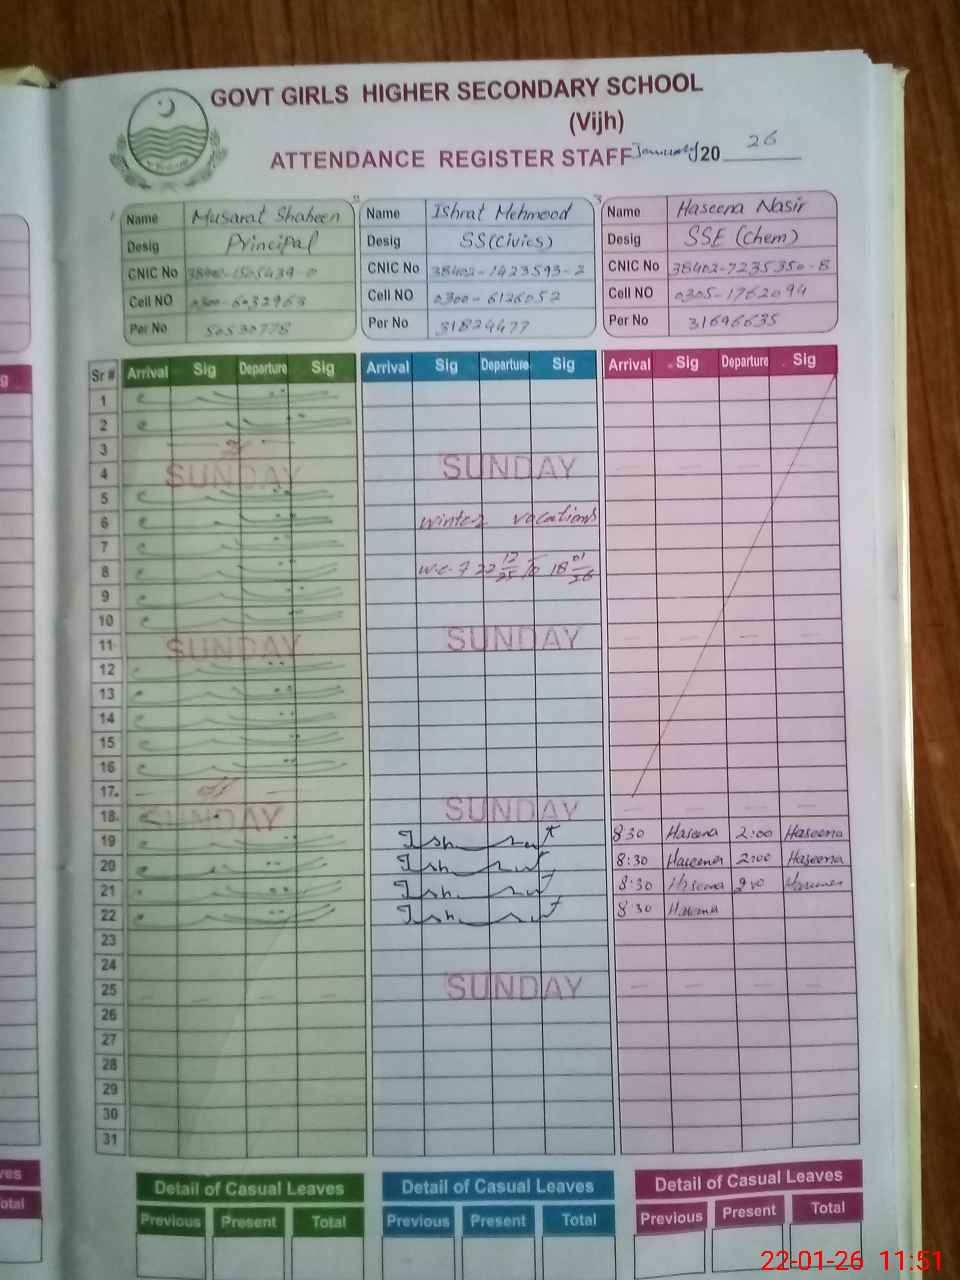 GOVT GIRLS HIGHER SECONDARY SCHOOL
(Vijh)
ATTENDANCE REGISTER STAFF January 2026
Name Musarat Shaheen
Desig Principal
CNIC No
Cell NO 0300-6032963
Per No 50530778
Name Ishrat Mehmood
Desig SS(Civics)
CNIC No 38402-1423593-2
Cell NO 0300-6126052
Per No 31824477
Name Haseena Nasir
Desig SSE (Chem)
CNIC No 38402-7235350-8
Cell NO 0305-1762094
Per No 31696635
Sr # Arrival Sig Departure Sig Arrival Sig Departure Sig Arrival Sig Departure Sig
1
2
3
4 SUNDAY SUNDAY
5
6 winter vacations
7
8 w.e.f 22 12/25 To 18 01/26
9
10
11 SUNDAY SUNDAY
12
13
14
15
16
17
18 SUNDAY SUNDAY
19 8 30 Haseena 2:00 Haseena
20 8:30 Haseena 2:00 Haseena
21 8:30 Haseena 2:00 Haseena
22 8 30 Haseena
23
24
25 SUNDAY
26
27
28
29
30
31
Detail of Casual Leaves Detail of Casual Leaves Detail of Casual Leaves
Previous Present Total Previous Present Total Previous Present Total
22-01-26 11:51